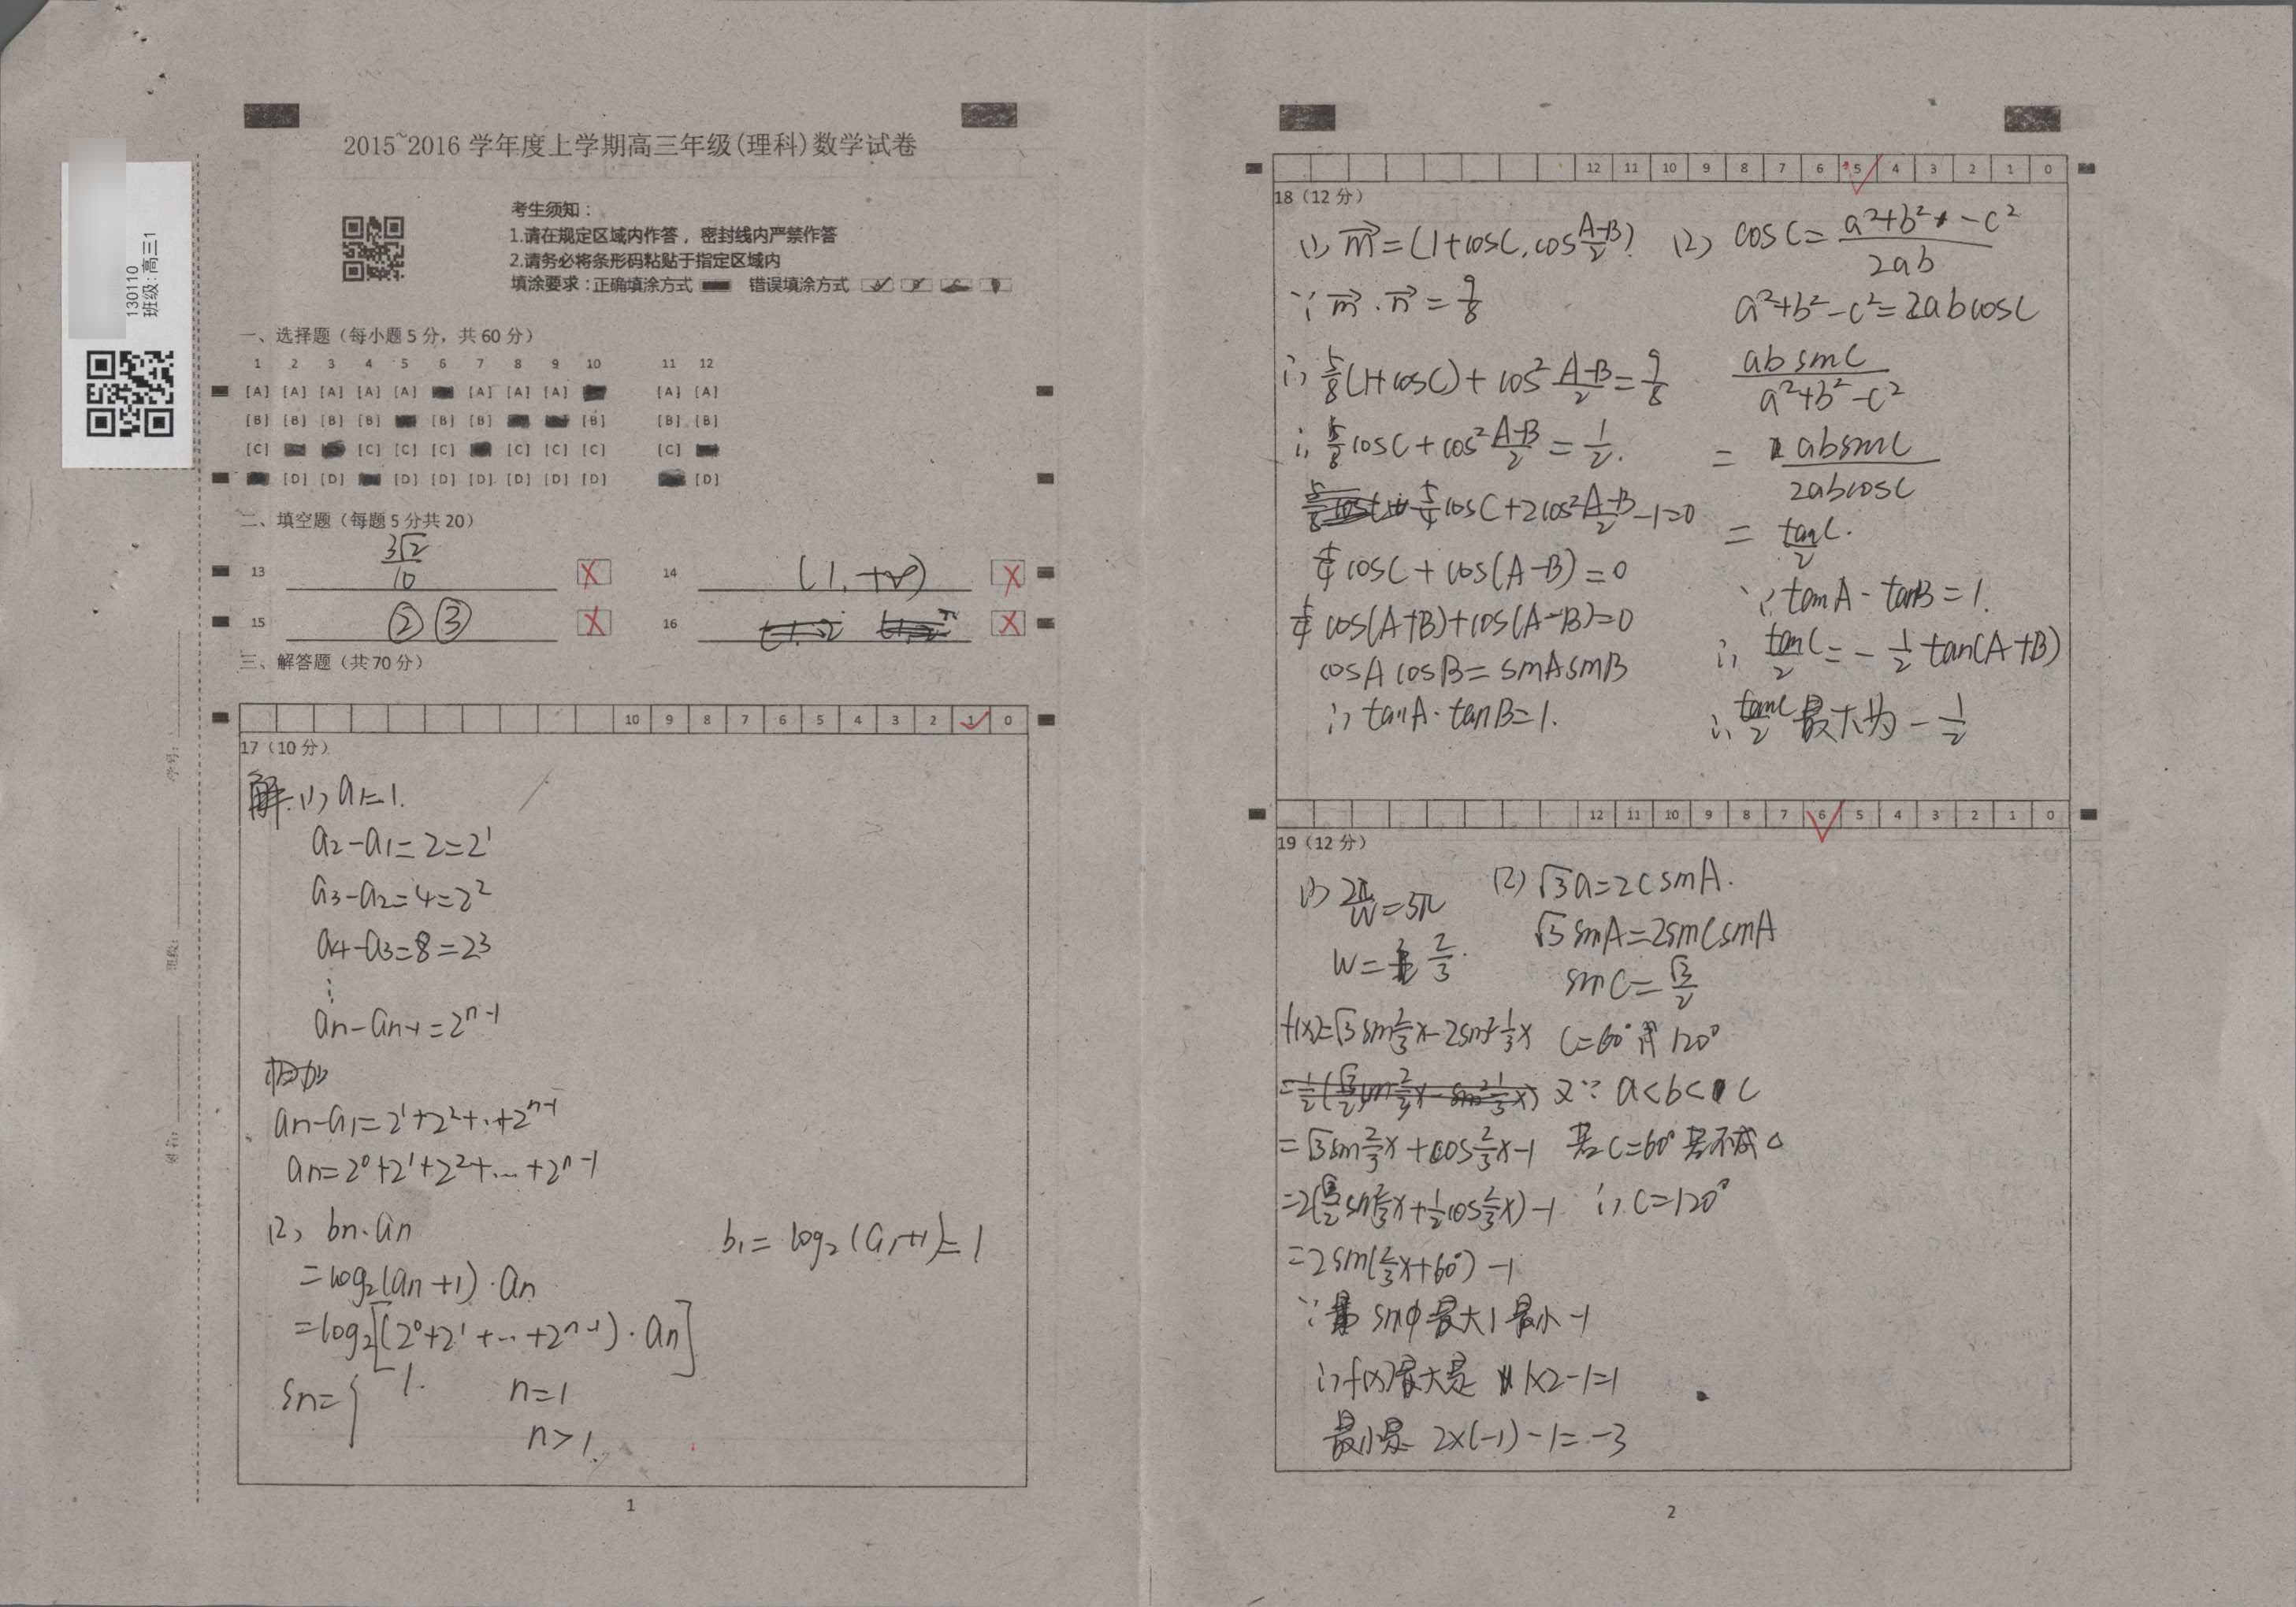 2015~2016 学年度上学期高三年级(理科)数学试卷
130110
班级:高三1
考生须知：
1.请在规定区域内作答，密封线内严禁作答
2.请务必将条形码粘贴于指定区域内
填涂要求：正确填涂方式 错误填涂方式
一、选择题（每小题 5 分，共 60 分）
1 2 3 4 5 6 7 8 9 10 11 12
[A] [A] [A] [A] [A] [A] [A] [A] [A] [A]
[B] [B] [B] [B] [B] [B] [B] [B] [B]
[C] [C] [C] [C] [C] [C] [C] [C]
[D] [D] [D] [D] [D] [D] [D] [D] [D]
二、填空题（每题 5 分共 20）
13 3√2/10 X 14 (1,+∞) X
15 ②③ X 16 X
三、解答题（共 70 分）
10 9 8 7 6 5 4 3 2 1 0
17（10 分）
解:(1) a1=1.
a2-a1=2=2^1
a3-a2=4=2^2
a4-a3=8=23
⋮
an-an-1=2^n-1
相加
an-a1=2^1+2^2+..+2^n-1
an=2^0+2^1+2^2+...+2^n-1
(2) bn·an
=log2(an+1)·an
=log2[(2^0+2^1+...+2^n-1)·an]
Sn={ 1. n=1
n>1.
b1=log2(a1+1)=1
学号:
班级:
姓名:
1
12 11 10 9 8 7 6 5 4 3 2 1 0
18（12 分）
(1) m⃗=(1+cosC,cos(A-B)/2)
∵ m⃗·n⃗=9/8
∴ 5/8(1+cosC)+cos²(A-B)/2=9/8
∴ 5/8cosC+cos²(A-B)/2=1/2.
5/4cosC+2cos²(A-B)/2-1=0
5/4cosC+cos(A-B)=0
5/4cos(A+B)+cos(A-B)=0
cosAcosB=sinAsinB
∴ tanA·tanB=1.
(2) cosC=(a²+b²-c²)/2ab
a²+b²-c²=2abcosC
absinC/(a²+b²-c²)
=absinC/2abcosC
=tanC/2.
∵ tanA·tanB=1.
∴ tanC/2=-1/2tan(A+B)
∴ tanC/2最大为-1/2
12 11 10 9 8 7 6 5 4 3 2 1 0
19（12 分）
(1) 2π/W=3π
W=2/3.
f(x)=√3sin2/3x-2sin²1/3x
=√3sin2/3x+cos2/3x-1
=2(√3/2sin2/3x+1/2cos2/3x)-1
=2sin(2/3x+60°)-1
∵ sinφ最大1最小-1
∴f(x)最大是 1×2-1=1
最小是 2×(-1)-1=-3
(2) √3a=2csinA.
√3sinA=2sinCsinA
sinC=√3/2
C=60°或120°
又∵ a<b<c
若C=60° 若不成△
∴ C=120°
2